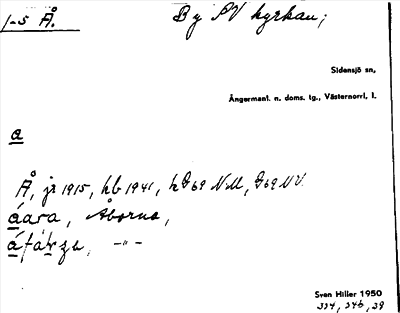 1-5 Å.
By NV kyrkan;
Sidensjö sn,
Ångermanl. n. doms. tg., Västernorrl. l.
a
Å, jr 1915, hb 1941, hG69 NM, G69 NV.
åara, Åborna,
-"-
Sven Hiller 1950
334, 346, 39